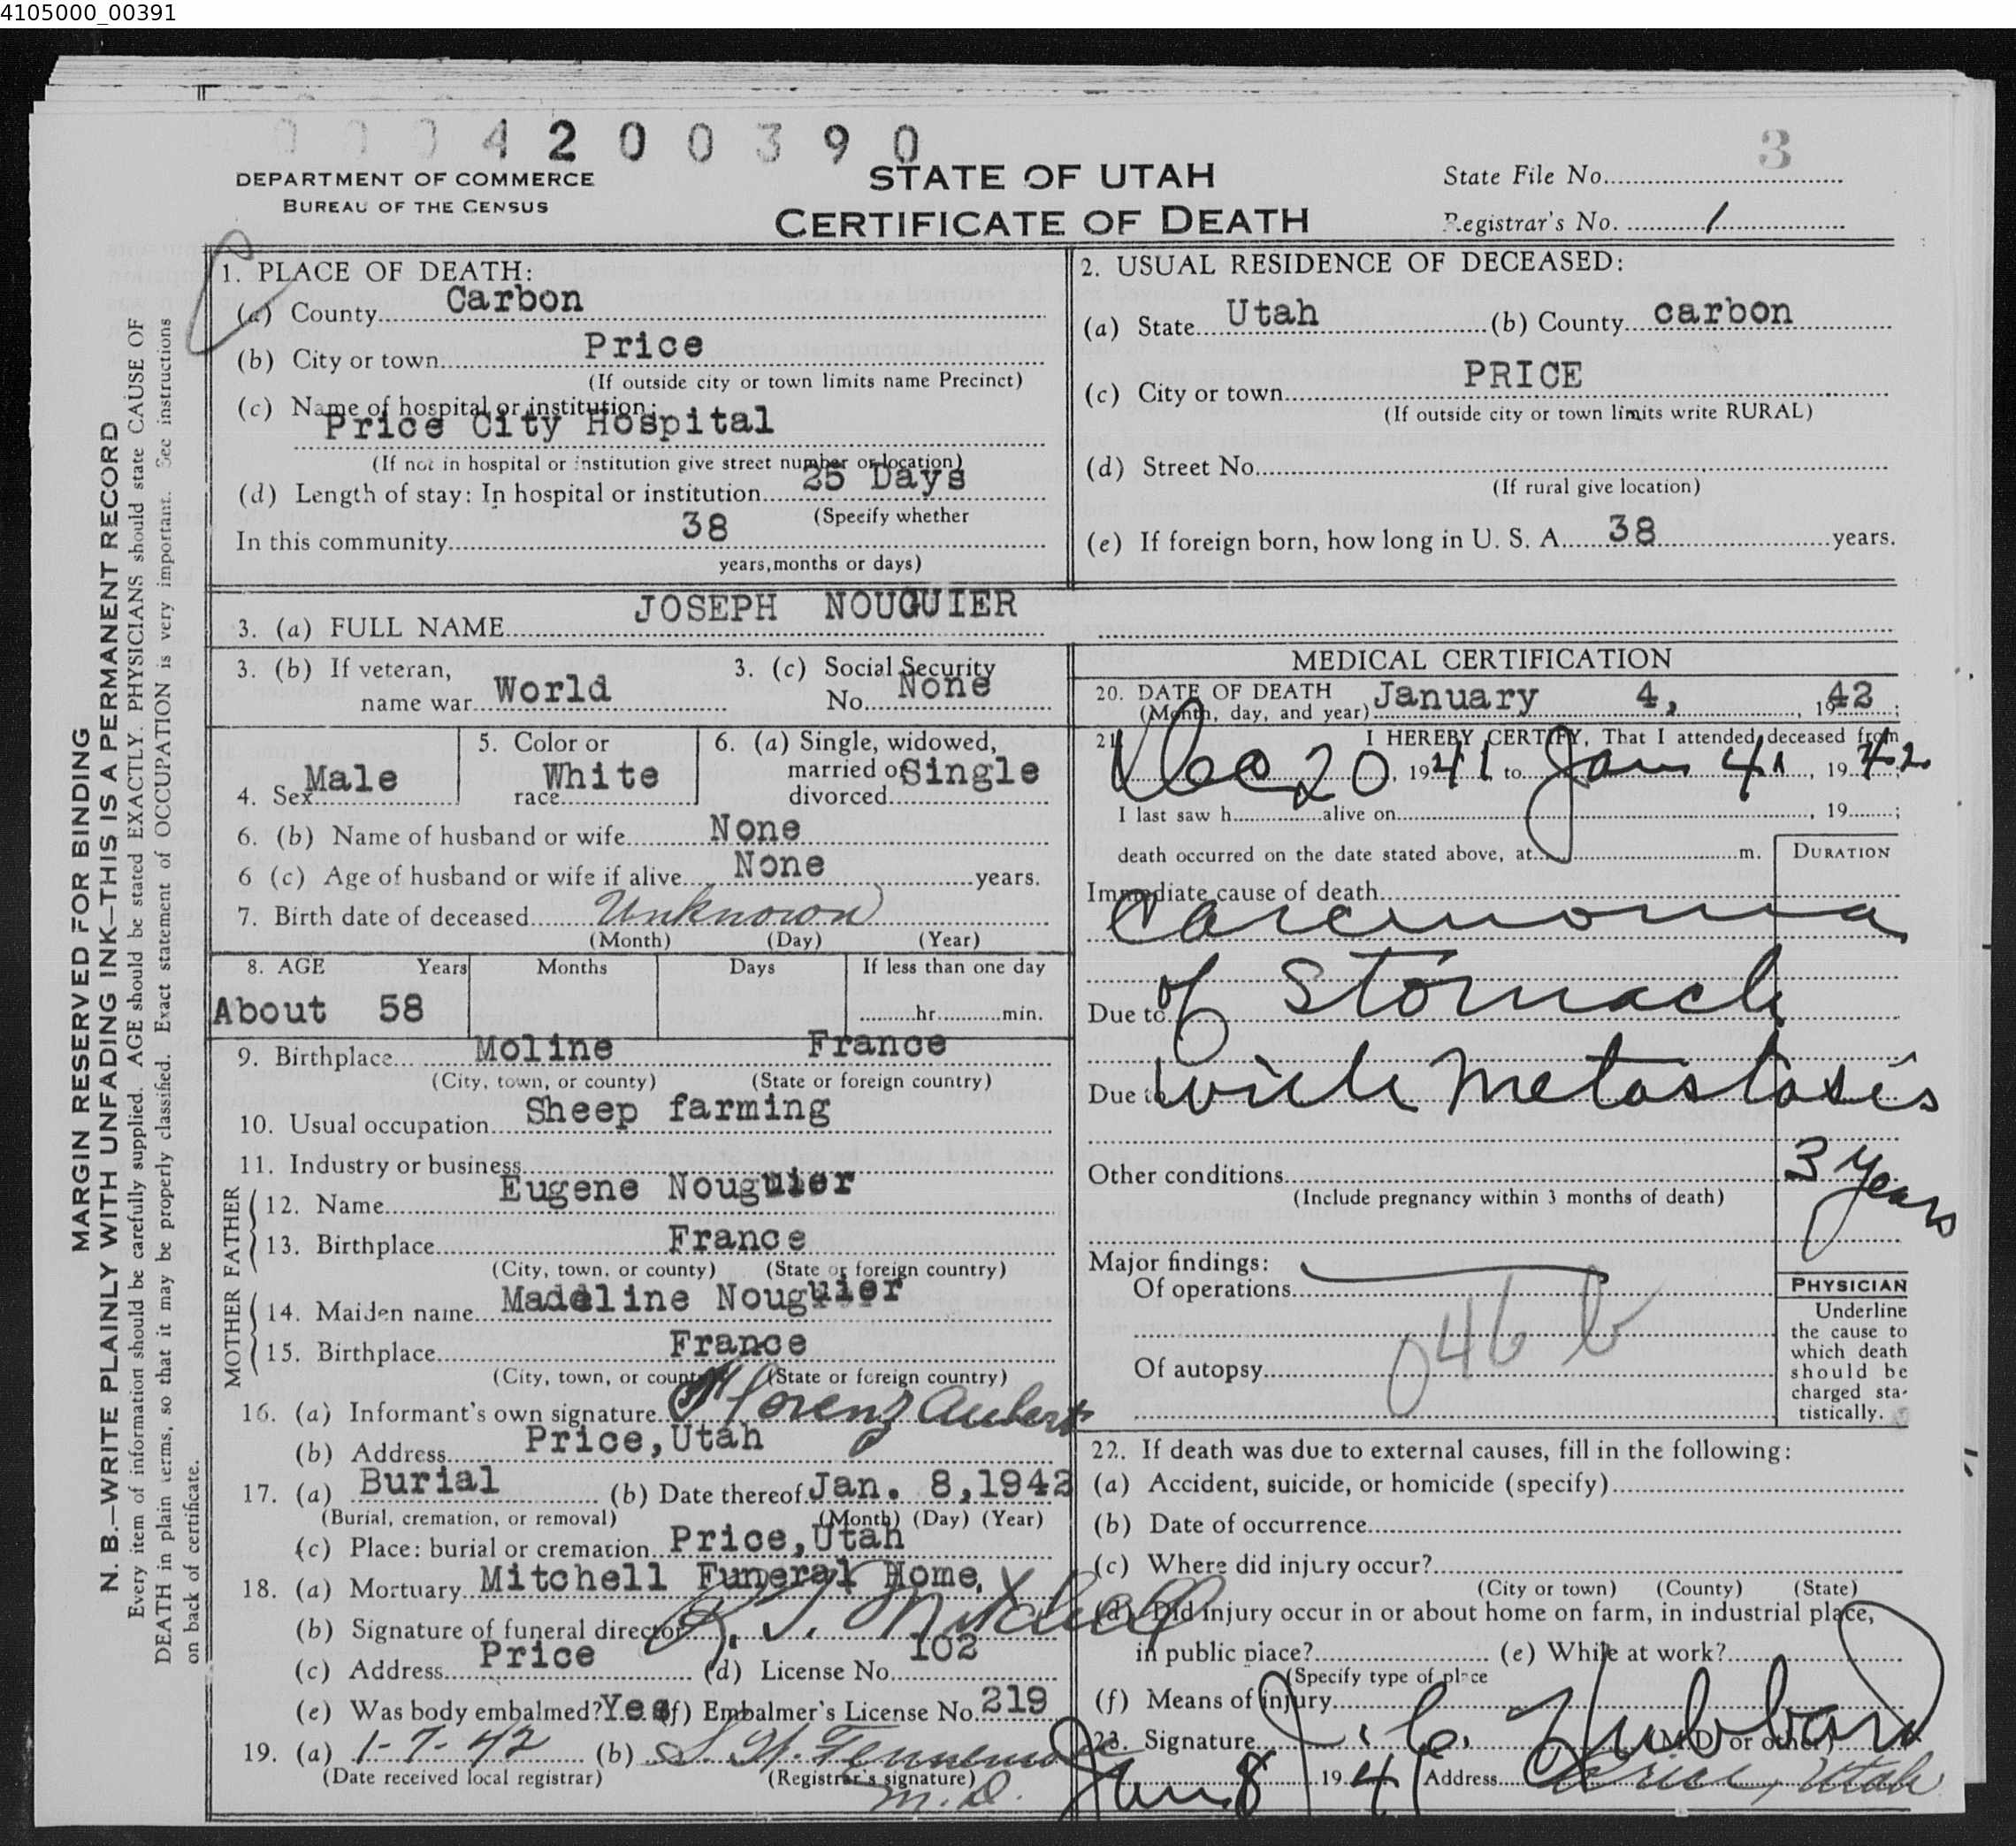 4105000_00391
0004200390
3
DEPARTMENT OF COMMERCE
BUREAU OF THE CENSUS
STATE OF UTAH
CERTIFICATE OF DEATH
State File No.
Registrar's No. 1
MARGIN RESERVED FOR BINDING
N. B.—WRITE PLAINLY WITH UNFADING INK—THIS IS A PERMANENT RECORD
Every item of information should be carefully supplied. AGE should be stated EXACTLY. PHYSICIANS should state CAUSE OF
DEATH in plain terms, so that it may be properly classified. Exact statement of OCCUPATION is very important. See instructions
on back of certificate.
1. PLACE OF DEATH:
(a) County Carbon
(b) City or town Price
(If outside city or town limits name Precinct)
(c) Name of hospital or institution:
Price City Hospital
(If not in hospital or institution give street number or location)
(d) Length of stay: In hospital or institution 25 Days
(Specify whether
In this community 38
years, months or days)
2. USUAL RESIDENCE OF DECEASED:
(a) State Utah (b) County carbon
(c) City or town PRICE
(If outside city or town limits write RURAL)
(d) Street No.
(If rural give location)
(e) If foreign born, how long in U. S. A. 38 years.
3. (a) FULL NAME JOSEPH NOUGUIER
3. (b) If veteran,
name war World
3. (c) Social Security
No. None
4. Sex Male
5. Color or
race White
6. (a) Single, widowed,
married or Single
divorced
6. (b) Name of husband or wife None
6 (c) Age of husband or wife if alive None years.
7. Birth date of deceased Unknown
(Month) (Day) (Year)
8. AGE Years Months Days If less than one day
About 58 hr. min.
9. Birthplace Moline France
(City, town, or county) (State or foreign country)
10. Usual occupation Sheep farming
11. Industry or business
FATHER
12. Name Eugene Nouguier
13. Birthplace France
(City, town, or county) (State or foreign country)
MOTHER
14. Maiden name Madeline Nouguier
15. Birthplace France
(City, town, or county) (State or foreign country)
16. (a) Informant's own signature Florenz Aubert
(b) Address Price, Utah
17. (a) Burial (b) Date thereof Jan. 8, 1942
(Burial, cremation, or removal) (Month) (Day) (Year)
(c) Place: burial or cremation Price, Utah
18. (a) Mortuary Mitchell Funeral Home.
(b) Signature of funeral director Mitchell
(c) Address Price (d) License No. 102
(e) Was body embalmed? Yes (f) Embalmer's License No. 219
19. (a) 1-7-42 (b)
(Date received local registrar) (Registrar's signature)
M.D.
MEDICAL CERTIFICATION
20. DATE OF DEATH January 4, 1942;
(Month, day, and year)
21. I HEREBY CERTIFY, That I attended deceased from
Dec 20, 1941 to Jan 4, 1942
I last saw h alive on , 19 ;
death occurred on the date stated above, at m.
DURATION
Immediate cause of death
Carcinoma
Due to of Stomach
Due to with Metastasis
3 years
Other conditions
(Include pregnancy within 3 months of death)
Major findings:
Of operations
046 b
Of autopsy
PHYSICIAN
Underline
the cause to
which death
should be
charged sta-
tistically.
22. If death was due to external causes, fill in the following:
(a) Accident, suicide, or homicide (specify)
(b) Date of occurrence
(c) Where did injury occur?
(City or town) (County) (State)
(d) Did injury occur in or about home on farm, in industrial place,
in public place? (e) While at work?
(Specify type of place
(f) Means of injury
23. Signature J. C. Hubbard (M.D. or other)
Jan 8 1941 Address Price, Utah